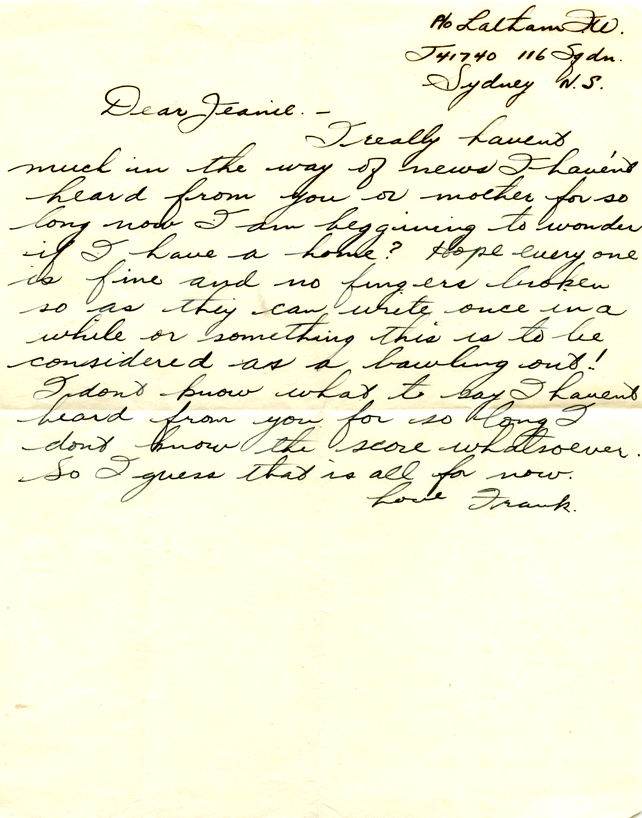 P/O Latham FW.
J41740 116 Sqdn.
Sydney N.S.
Dear Jeanie. –
I really havent
much in the way of news I haven't
heard from you or mother for so
long now I am beggining to wonder
if I have a home? Hope every one
is fine and no fingers broken
so as they can write once in a
while or something this is to be
considered as a bawling out!
I dont know what to say I havent
heard from you for so long I
dont know the score whatsoever.
So I guess that is all for now.
Love Frank.